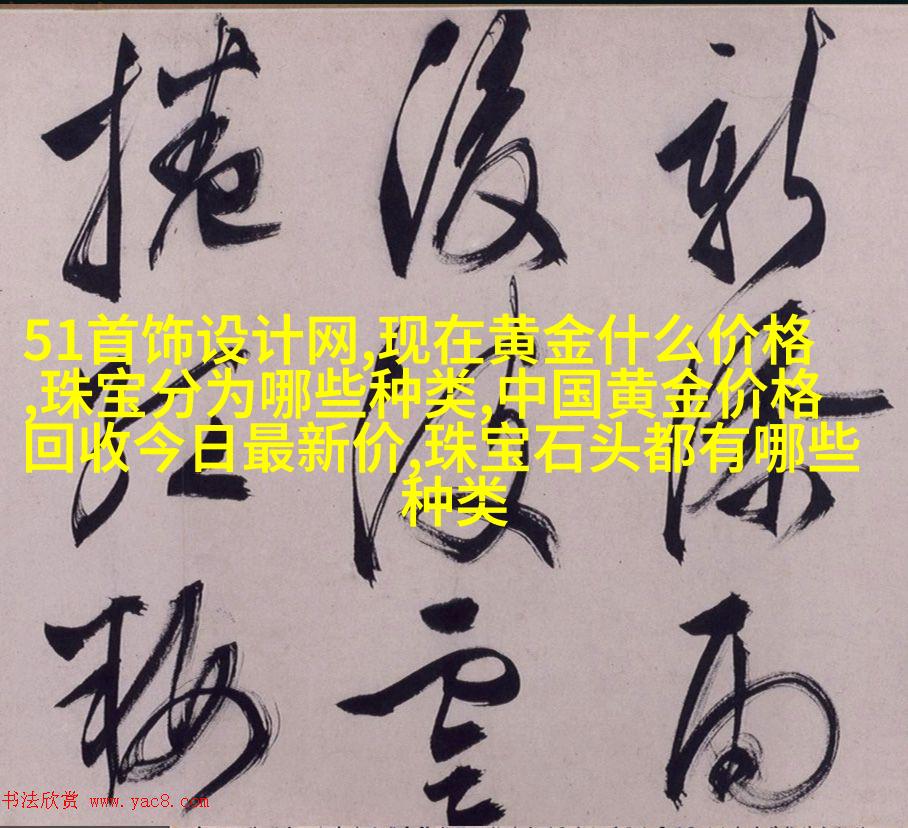 51首饰设计网,现在黄金什么价格
,珠宝分为哪些种类,中国黄金价格
回收今日最新价,珠宝石头都有哪些
种类
新雨
雲
捲梅
书法欣赏 www.yac8.com